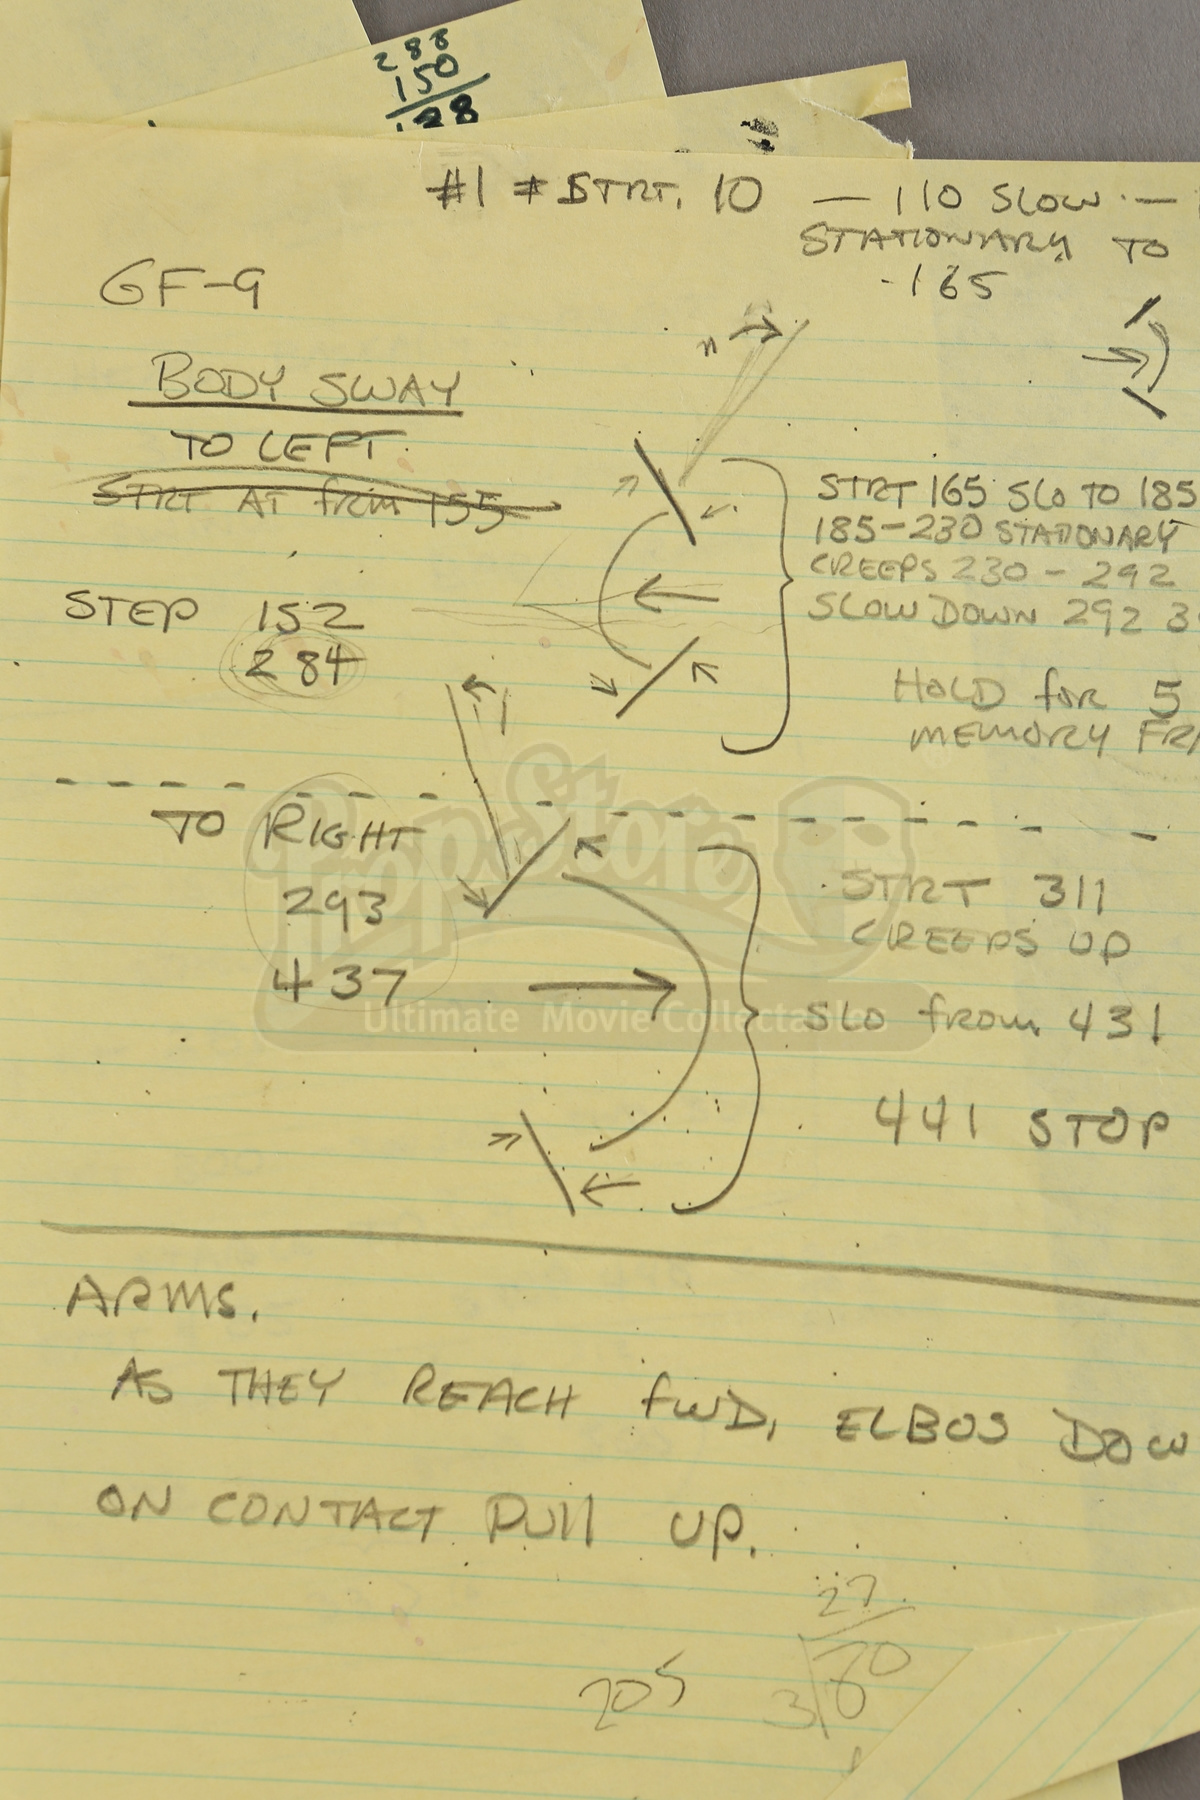 288
150
128
#1 # STRT. 10 — 110 SLOW —
STATIONARY TO
165
GF-9
BODY SWAY
TO LEFT
STRT AT frm 155
STRT 165 SLO TO 185
185-230 STATIONARY
CREEPS 230 - 292
SLOW DOWN 292 3
STEP 152
284
HOLD for 5
MEMORY FR
TO RIGHT
293
437
STRT 311
CREEPS UP
SLO from 431
441 STOP
PropStore
Ultimate Movie Collectables
ARMS.
AS THEY REACH fWD, ELBOS DOW
ON CONTACT PUll UP.
27
205
3 80